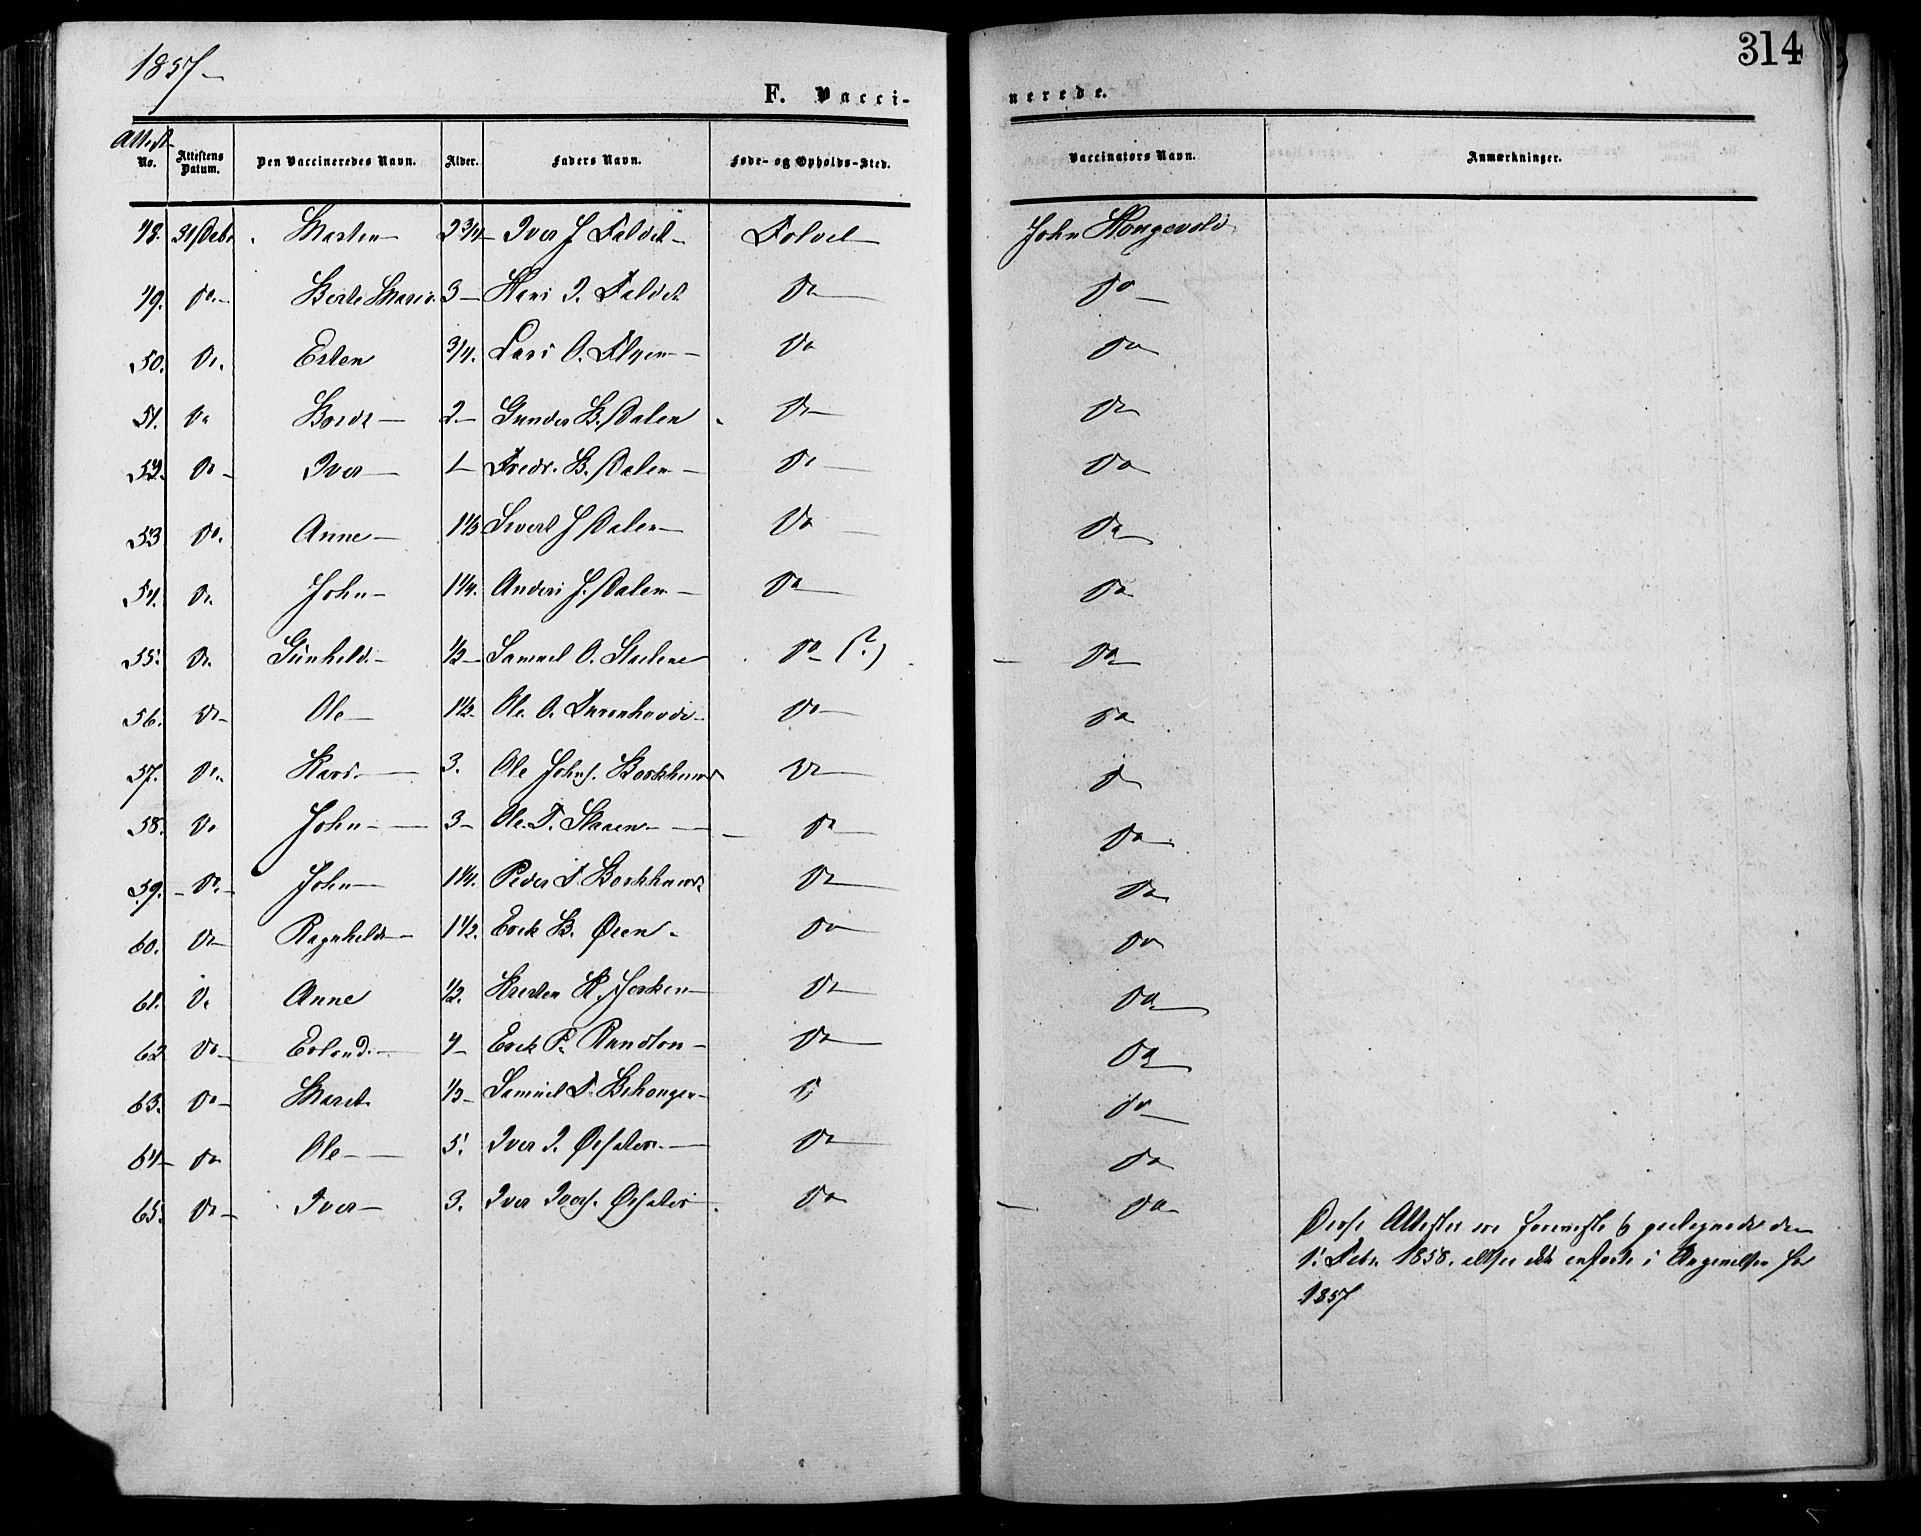 1857
314
F. Vacci-
nerede.
Attest
No. Attestens Datum. Den Vaccineredes Navn. Alder. Faders Navn. Føde- og Opholds-Sted. Vaccinators Navn. Anmærkninger.
48. 31/Decbr. Marten 2 3/4 Iver J Foldet Foldet John Kongsvold
49. Do. Berte Marie 3 Hans I. Foldet Do Do
50. Do. Esten 3/4. Lars O. Do Do
51. Do Bordt 2 Gunder B. Dalen Do Do
52. Do Iver 1 Fredr. B. Dalen Do Do
53 Do. Anne 1 1/3 Sivert J Dalen Do Do
54. Do John 1 1/4. Anders J. Dalen Do Do
55. Do. Gunhild. 1/3 Samuel O. Do (?) Do
56. Do Ole 1 1/2 Ole O. Do Do
57. Do. Kari 3. Ole Johns. Borkhuus Do Do
58. Do John 3 Ole T. Skaren Do Do
59. Do. John 1 1/4. Peder T. Borkhuus Do Do
60. Do Ragnhild 1 1/2. Erik B. Øien Do Do
61. Do Anne 1/2. Kresten K. Do Do
62 Do Erland. 4 Erik P. Do Do
63. Do Maret 1/3 Samuel T. Do Do
64 Do Ole 5. Iver I. Do Do
65. Do Iver 3. Iver Ivers. Do Do
Disse Attester ere formeste
1. Febr. 1858. altsaa ikke anførte i Angivelsen for
1857